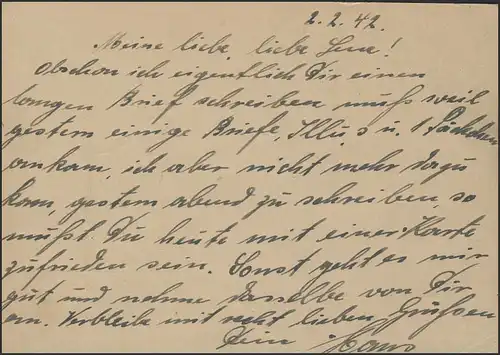 2.2.42.
Meine liebe, liebe Lene!
Obschon ich eigentlich Dir einen
langen Brief schreiben muß weil
gestern einige Briefe, Illus u. 1 Päckchen
ankam, ich aber nicht mehr dazu
kam, gestern abend zu schreiben, so
mußt Du heute mit einer Karte
zufrieden sein. Sonst geht es mir
gut und nehme dasselbe von Dir
an. Verbleibe mit recht lieben Grüßen
Dein Hans